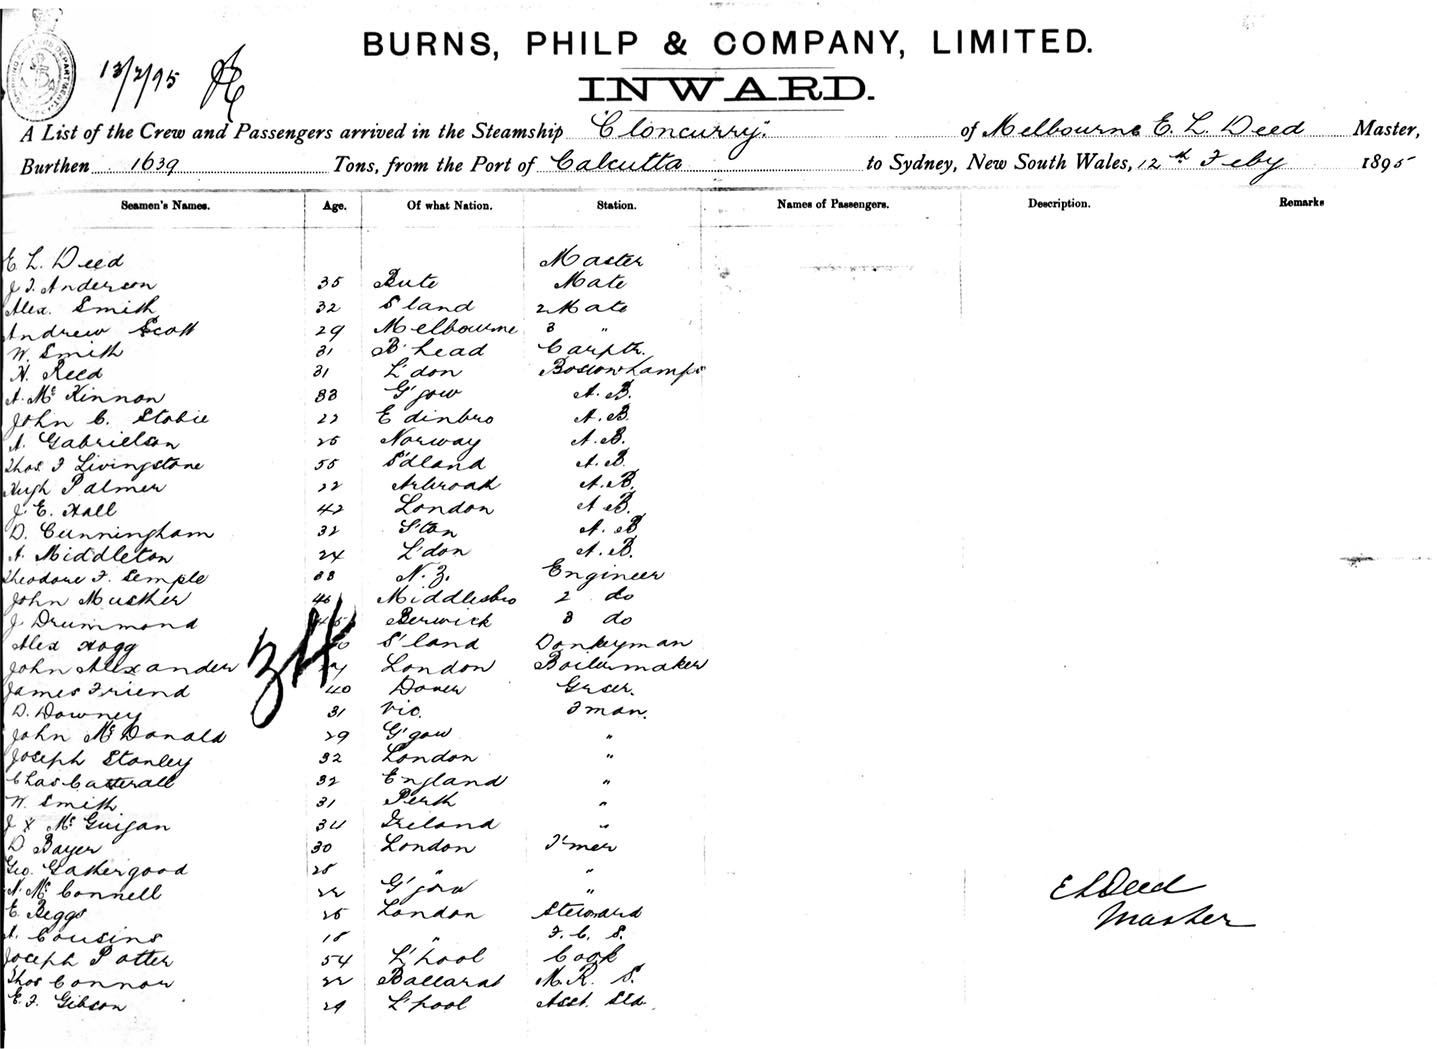 13/2/95
BURNS, PHILP & COMPANY, LIMITED.
INWARD.
A List of the Crew and Passengers arrived in the Steamship "Cloncurry" of Melbourne E. L. Deed Master,
Burthen 1639 Tons, from the Port of Calcutta to Sydney, New South Wales, 12th Feby 1895
Seamen's Names. Age. Of what Nation. Station. Names of Passengers. Description. Remarks
E. L. Deed Master
J. T. Anderson 35 Bute Mate
Alex. Smith 32 S'land 2 Mate
Andrew Scott 29 Melbourne 3 "
W. Smith 31 B'head Carptr.
H. Reed 31 L'don
A. McKinnon 33 G'gow A.B.
John C. Stobie 22 Edinbro A.B.
A. Gabrielson 25 Norway A.B.
Thos. F Livingstone 55 S'dland A.B.
Hugh Palmer 22 Arbroath A.B.
J. E. Hall 42 London A B.
D. Cunningham 32 S'ton A.B.
A. Middleton 24 L'don A.B.
Theodore F. Semple 33 N.Z. Engineer
John Musther 46 Middlesbro 2 do
J Drummond Berwick 3 do
Alex Hogg S'land Donkeyman
34
John Alexander London Boilermaker
James Friend 40 Dover Greser.
D. Downey 31 Vic. Fman.
John McDonald 29 G'gow "
Joseph Stanley 32 London "
Chas Catterall 32 England "
W. Smith 31 Perth "
J McGuigan 34 Ireland "
D Bayer 30 London T'mer
Geo. Gathergood 28 " "
N. McConnell 22 G'gow "
E. Beggs 25 London Steward
A. Cousins 18 " F. C. S.
Joseph Potter 54 L'pool Cook
Thos Connor 22 Ballarat M. R. S.
E. F. Gibson 29 L'pool Asst. Std.
E L Deed
Master